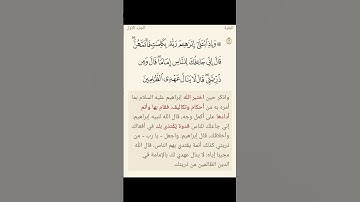 البقرة
الجزء الأول
۞ وَإِذِ ٱبْتَلَىٰٓ إِبْرَٰهِـۧمَ رَبُّهُۥ بِكَلِمَٰتٍ فَأَتَمَّهُنَّ ۖ
قَالَ إِنِّى جَاعِلُكَ لِلنَّاسِ إِمَامًا ۖ قَالَ وَمِن
ذُرِّيَّتِى ۖ قَالَ لَا يَنَالُ عَهْدِى ٱلظَّٰلِمِينَ
واذكر حين اختبر الله إبراهيم عليه السلام بما
أمره به من أحكام وتكاليف، فقام بها وأتم
أداءها على أكمل وجه، قال الله لنبيه إبراهيم:
إني جاعلك للناس قدوة يُقتدى بك في أفعالك
وأخلاقك. قال إبراهيم: واجعل - يا رب - من
ذريتي كذلك أئمة يقتدي بهم الناس، قال الله
مجيبًا إياه: لا ينال عهدي لك بالإمامة في
الدين الظالمين من ذريتك.